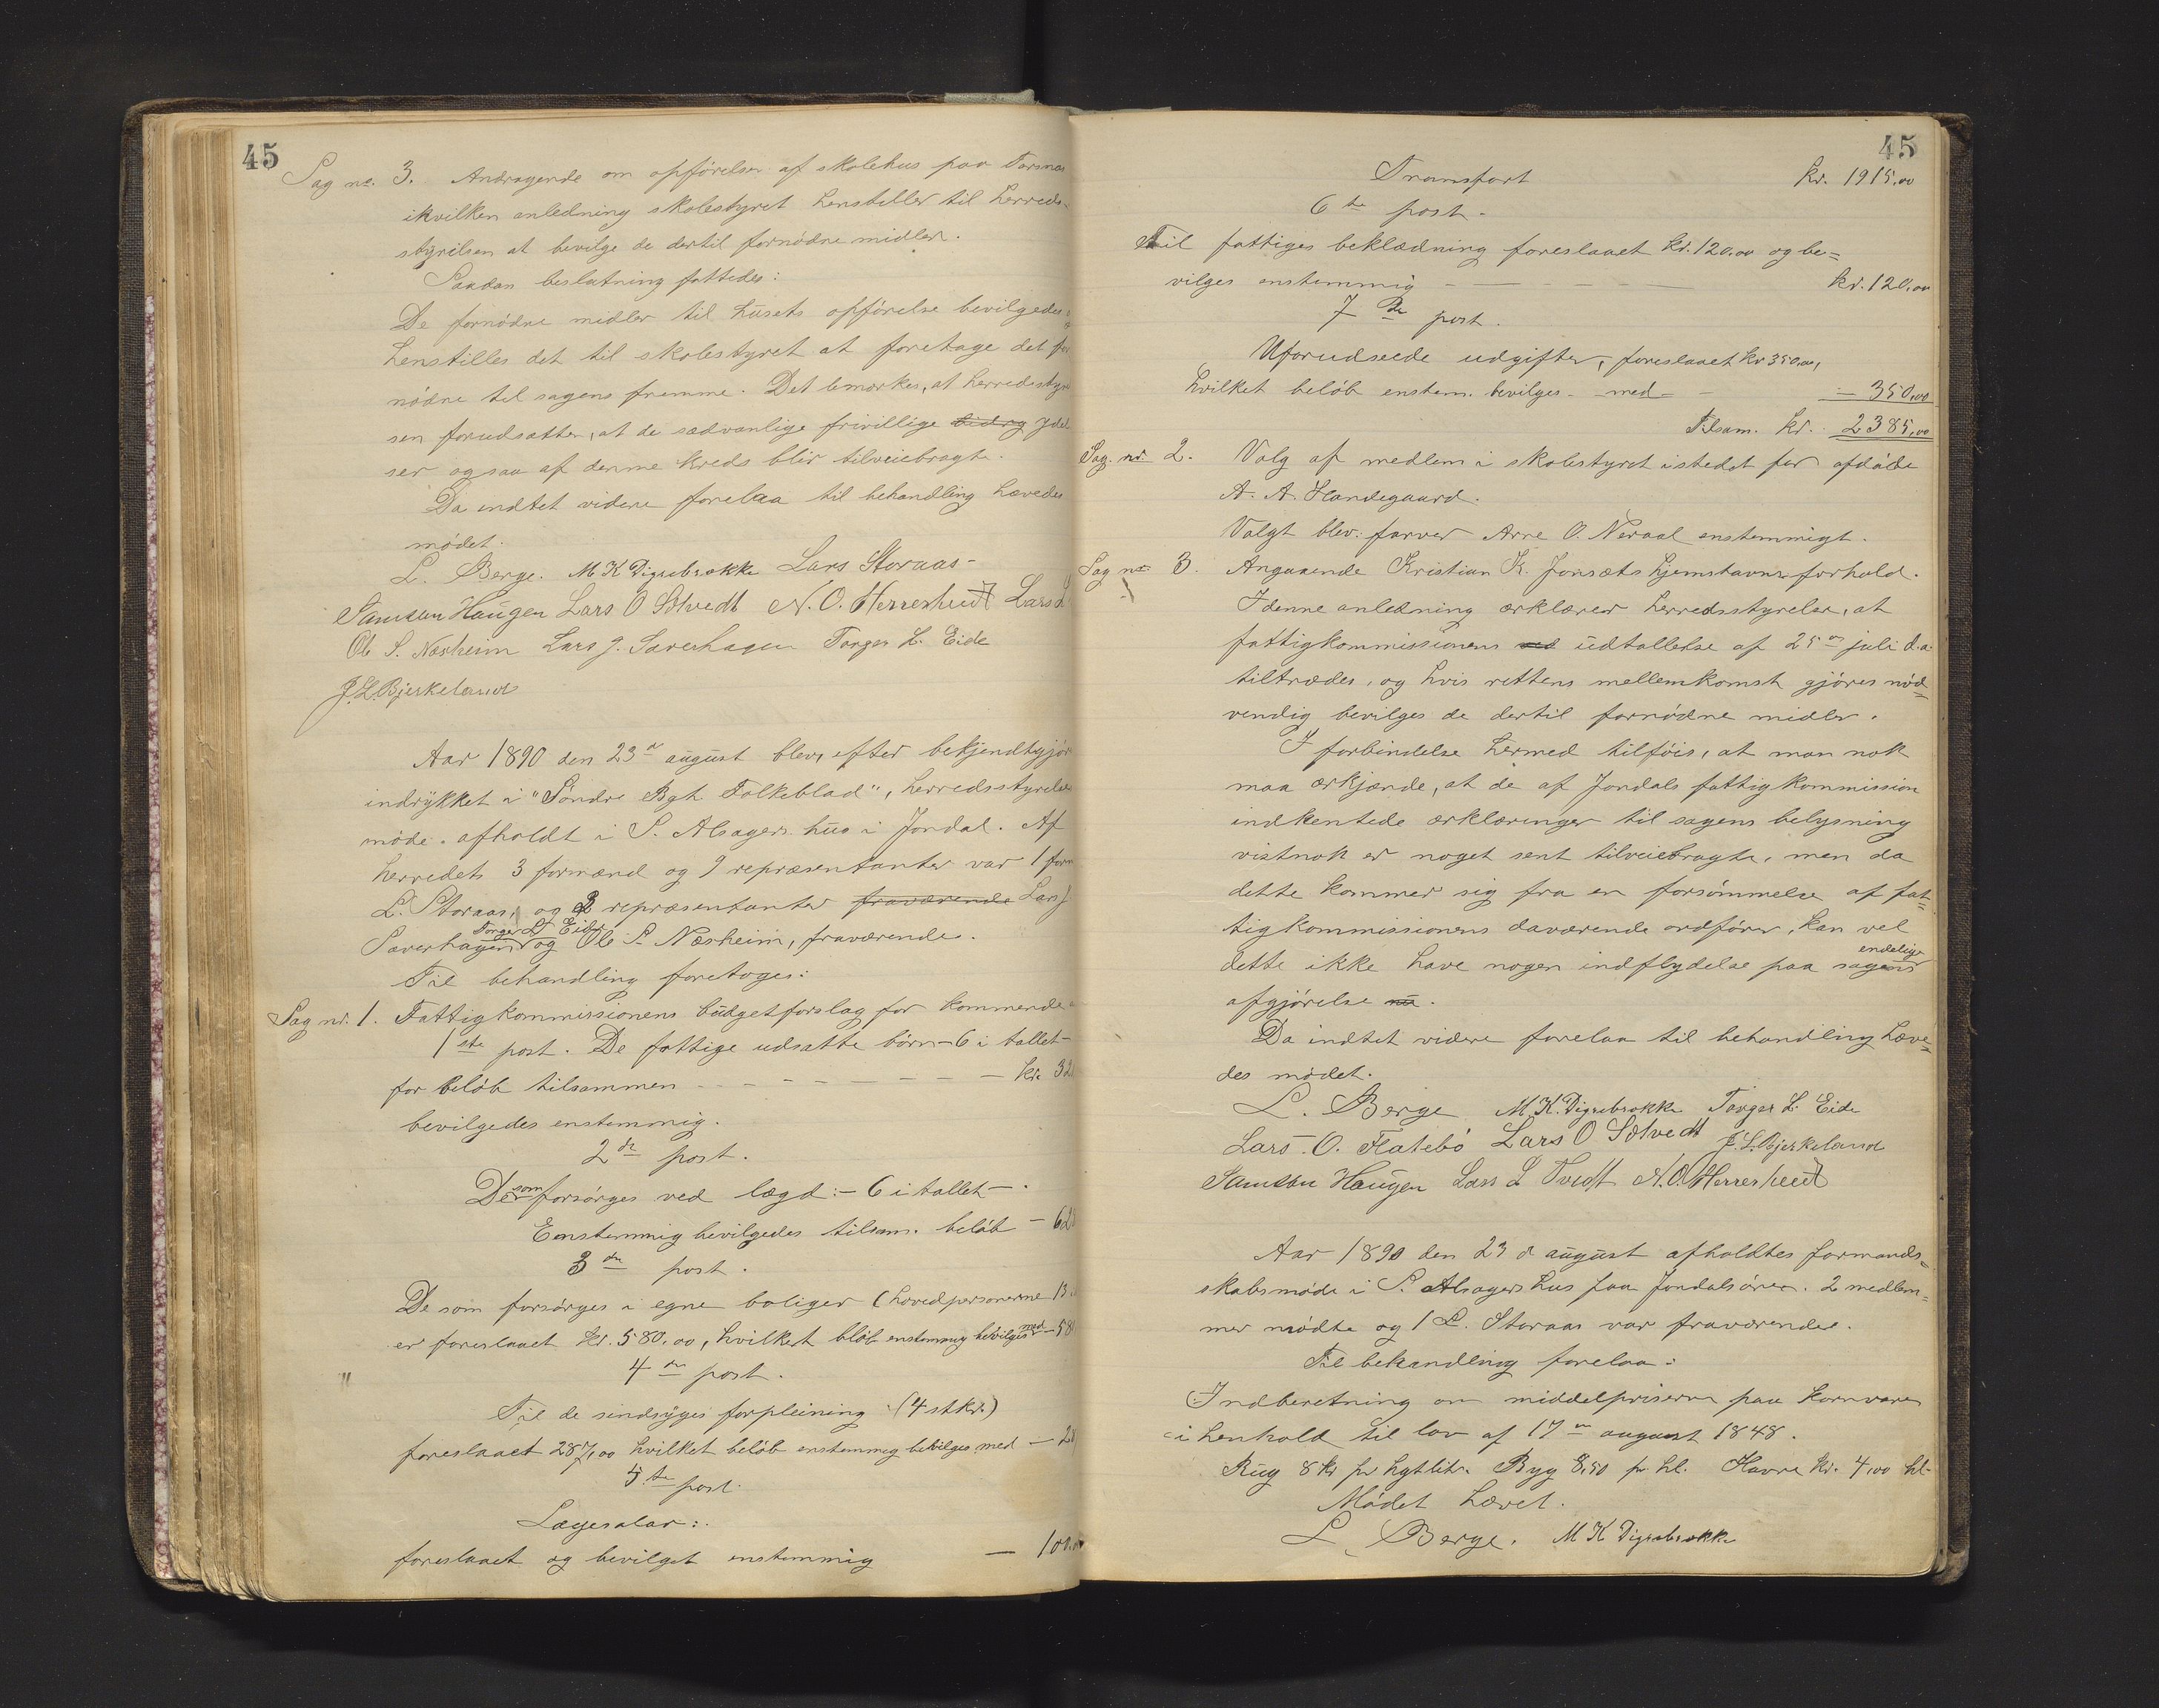 45
Sag no. 3. Andragende om opförelse af skolehus paa
ikvilken anledning skolestyret henstiller til herreds-
styrelsen at bevilge de dertil fornödne midler.
Saadan beslutning fattedes:
De fornödne midler til husets opförelse bevilgedes
henstilles det til skolestyret at foretage det for
nödne til sagens fremme. Det bemærkes, at herredssty
sen forudsætter, at de sædvanlige frivillige bidrg ydel
ser ogsaa af denne kreds blir tilveiebragte.
Da indtet videre forelaa til behandling hævedes
mödet.
L. Berge. M K Digrebrække Lars Storaas-
Samson Haugen Lars O Sölvedt N. O. Herresthveidt Lars L
Ole S. Næsheim Lars J. Saverhagen Torger L. Eide
J. L. Bjerkeland
Aar 1890 den 23de august blev, efter bekjendtgjör
indrykket i "Söndre Bgh Folkeblad", herredsstyrelses
möde afholdt i S. Alsagers hus i Jondal. Af
herredets 3 formænd og 9 repræsentanter var 1 form
L. Storaas, og 3 repræsentanter fraværende Lars J
Torger L Eide
Saverhagen og Ole S. Næsheim, fraværende.
Til behandling foretoges:
Sag nr. 1. Fattigkommissionens budgetforslag for kommende
1ste post. De fattige udsatte börn - 6 i tallet -
for belöb tilsammen - - - - - - - kr. 32
bevilgedes enstemmig.
2den post.
De som forsörges ved lægd: - 6 i tallet -.
Enstemmig bevilgedes tilsam. belöb - 62
3die post.
De som forsörges i egne boliger (hovedpersonerne 13
er foreslaaet kr. 580.00, hvilket blöb enstemmig bevilges med - 58
4de post.
"
Til de sindsyges forpleining (4 stkr.)
foreslaaet 287,00 hvilket belöb enstemmig bevilges med - 28
5te post.
Lægesalær:
foreslaaet og bevilget enstemmig - 100.00
45
Transport kr. 1915,00
6te post.
Til fattiges beklædning foreslaaet kr. 120,00 og be=
vilges enstemmig - - - - - - kr. 120,00
7de post.
Uforudseede udgifter, foreslaaet kr 350,00,
hvilket belöb enstem. bevilges - med - - - 350,00
Tilsam. kr. 2385,00
Sag. nr 2. Valg af medlem i skolestyret istedet for afdöde
A. A. Handegaard.
Valgt blev: farver Arne O. Neraal enstemmigt.
Sag no 3. Angaaende Kristian K. Jonsæts hjemstavnsforhold.
I denne anledning erklærer herredsstyrelsen, at
fattigkommissionens ved udtallelse af 25de juli d.a.
tiltrædes, og hvis rettens mellemkomst gjöres nöd=
vendig bevilges de dertil fornödne midler.
I forbindelse hermed tilföies, at man nok
maa erkjende, at de af Jondals fattigkommission
indhentede erklæringer til sagens belysning
vistnok er noget sent tilveiebragte, men da
dette kommer sig fra en forsömmelse af fat=
tigkommissionens daværende ordförer, kan vel
endelige
dette ikke have nogen indflydelse paa sagens
afgjörelse nu.
Da indtet videre forelaa til behandling hæve=
des mödet.
L. Berge M. K. Digrebrække Torger L. Eide
Lars O. Flatebö Lars O Sölvedt J. L. Bjerkeland
Samson Haugen Lars L Tvedt N. O. Herresthveidt
Aar 1890 den 23 d august afholdtes formands=
skabsmöde i S. Alsagers hus paa Jondalsören. 2 medlem=
mer mödte og 1 L. Storaas var fraværende.
Til behandling forelaa:
Indberetning om middelpriserne paa kornvarer
i henhold til lov af 17de august 1848.
Rug 8 kr pr hgtlitr. Byg 8,50 pr. hl. Havre kr. 4,00 hl-
Mödet hævet.
L. Berge. M K Digrebrække